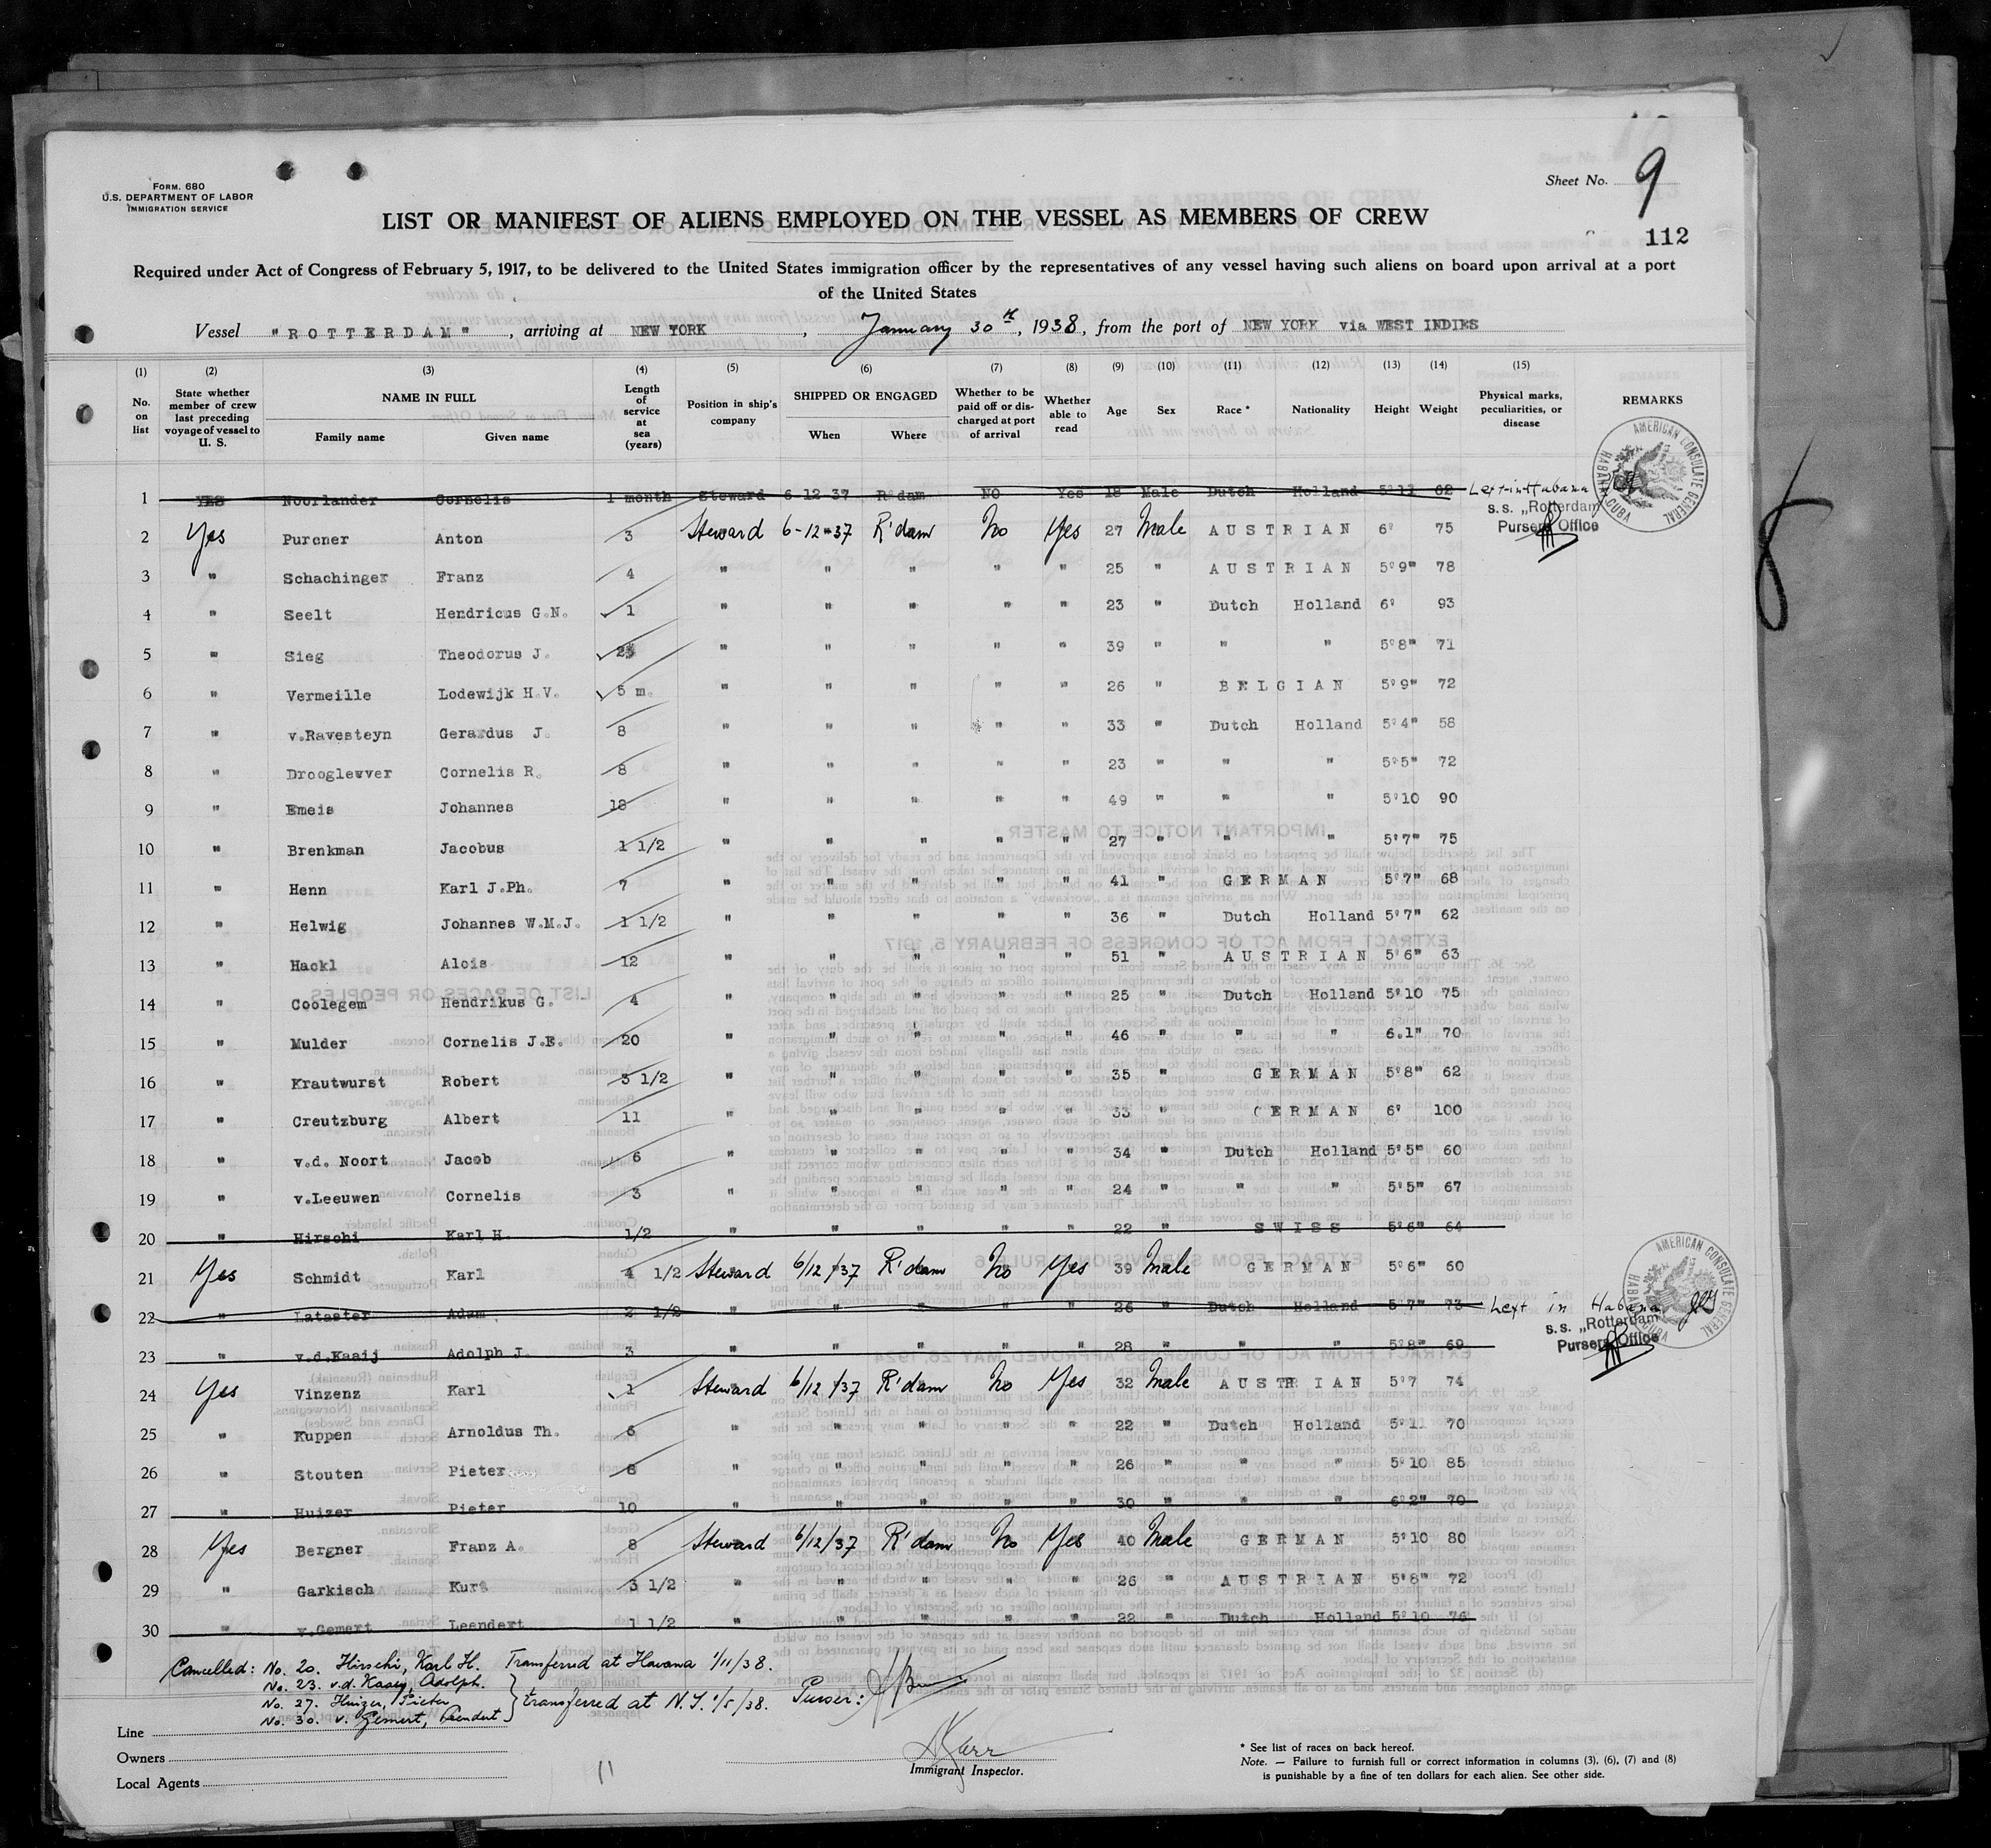 Form. 680
U.S. DEPARTMENT OF LABOR
IMMIGRATION SERVICE
Sheet No. 9
LIST OR MANIFEST OF ALIENS EMPLOYED ON THE VESSEL AS MEMBERS OF CREW
112
Required under Act of Congress of February 5, 1917, to be delivered to the United States immigration officer by the representatives of any vessel having such aliens on board upon arrival at a port
of the United States
Vessel "ROTTERDAM", arriving at NEW YORK, January 30th, 1938, from the port of NEW YORK via WEST INDIES
(1) (2) (3) (4) (5) (6) (7) (8) (9) (10) (11) (12) (13) (14) (15)
No. on list State whether member of crew last preceding voyage of vessel to U. S. NAME IN FULL Family name Given name Length of service at sea (years) Position in ship's company SHIPPED OR ENGAGED When Where Whether to be paid off or discharged at port of arrival Whether able to read Age Sex Race * Nationality Height Weight Physical marks, peculiarities, or disease REMARKS
AMERICAN CONSULATE GENERAL HABANA CUBA
1 YES Noorlander Cornelis 1 month Steward 6-12-37 R'dam NO Yes 18 Male Dutch Holland 5'11 62 Lext in Habana
s.s. „Rotterdam
Pursers Office
2 Yes Purcner Anton 3 Steward 6-12-37 R'dam No Yes 27 Male AUSTRIAN 6' 75
3 " Schachinger Franz 4 " " " " " 25 " AUSTRIAN 5'9" 78
4 " Seelt Hendricus G.N. 1 " " " " " 23 " Dutch Holland 6' 93
5 " Sieg Theodorus J. " " " " " 39 " " " 5'8" 71
6 " Vermeille Lodewijk H.V. 5 m. " " " " " 26 " BELGIAN 5'9" 72
7 " v.Ravesteyn Gerardus J. 8 " " " " " 33 " Dutch Holland 5'4" 58
8 " Drooglewver Cornelis R. 8 " " " " " 23 " " " 5'5" 72
9 " Emeis Johannes 18 " " " " " 49 " " " 5'10 90
10 " Brenkman Jacobus 1 1/2 " " " " " 27 " " " 5'7" 75
11 " Henn Karl J.Ph. 7 " " " " " 41 " GERMAN 5'7" 68
12 " Helwig Johannes W.M.J. 1 1/2 " " " " " 36 " Dutch Holland 5'7" 62
13 " Hackl Alois 12 " " " " " 51 " AUSTRIAN 5'6" 63
14 " Coolegem Hendrikus G. 4 " " " " " 25 " Dutch Holland 5'10 75
15 " Mulder Cornelis J.E. 20 " " " " " 46 " " " 6.1" 70
16 " Krautwurst Robert 3 1/2 " " " " " 35 " GERMAN 5'8" 62
17 " Creutzburg Albert 11 " " " " " 33 " GERMAN 6' 100
18 " v.d. Noort Jacob 6 " " " " " 34 " Dutch Holland 5'5" 60
19 " v.Leeuwen Cornelis 3 " " " " " 24 " " " 5'5" 67
20 " Hirschi Karl H. 1/2 " " " " " 22 " SWISS 5'6" 64
21 Yes Schmidt Karl 4 1/2 Steward 6/12/37 R'dam No Yes 39 Male GERMAN 5'6" 60
AMERICAN CONSULATE GENERAL HABANA CUBA
22 " Lataster Adam 2 1/2 " " " " " 26 " Dutch Holland 5'7" 73 Lext in Habana
s.s. „Rotterdam"
Pursers Office
23 " v.d.Kaaij Adolph J. 3 " " " " " 28 " " " 5'8" 69
24 Yes Vinzenz Karl 1 Steward 6/12/37 R'dam No Yes 32 Male AUSTRIAN 5'7 74
25 " Kuppen Arnoldus Th. 6 " " " " " 22 " Dutch Holland 5'11 70
26 " Stouten Pieter 8 " " " " " 26 " " " 5'10 85
27 " Huizer Pieter 10 " " " " " 30 " " " 6'2" 70
28 Yes Bergner Franz A. 8 Steward 6/12/37 R'dam No Yes 40 Male GERMAN 5'10 80
29 " Garkisch Kurt 3 1/2 " " " " " 26 " AUSTRIAN 5'8" 72
30 " v.Gemert Leendert 1 1/2 " " " " " 22 " Dutch Holland 5'10 76
Cancelled: No. 20. Hirschi, Karl H. Transferred at Havana 1/11/38.
No. 23. v.d. Kaaij, Adolph.
No. 27. Huizer, Pieter
transferred at N.Y. 1/5/38. Purser:
No. 30. v. Gemert, Leendert
Line
Owners
Local Agents
11
Immigrant Inspector.
* See list of races on back hereof.
Note. — Failure to furnish full or correct information in columns (3), (6), (7) and (8)
is punishable by a fine of ten dollars for each alien. See other side.